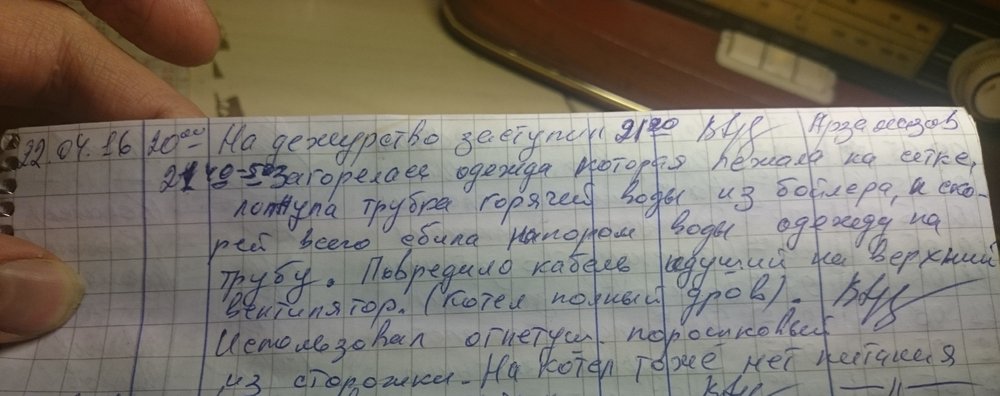 22.04.16 20 00 На дежурство заступил 2120 Арзамазов
21 40-50 Загорелась одежда которая лежала на сетке,
лопнула трубка горячей воды из бойлера, и ско-
рей всего сбила напором воды одежду на
трубу. Повредило кабель идущий на верхний
вентилятор. (Котел полный дров).
Использовал огнетуш. порошковый
из сторожки. На котел тоже нет питания